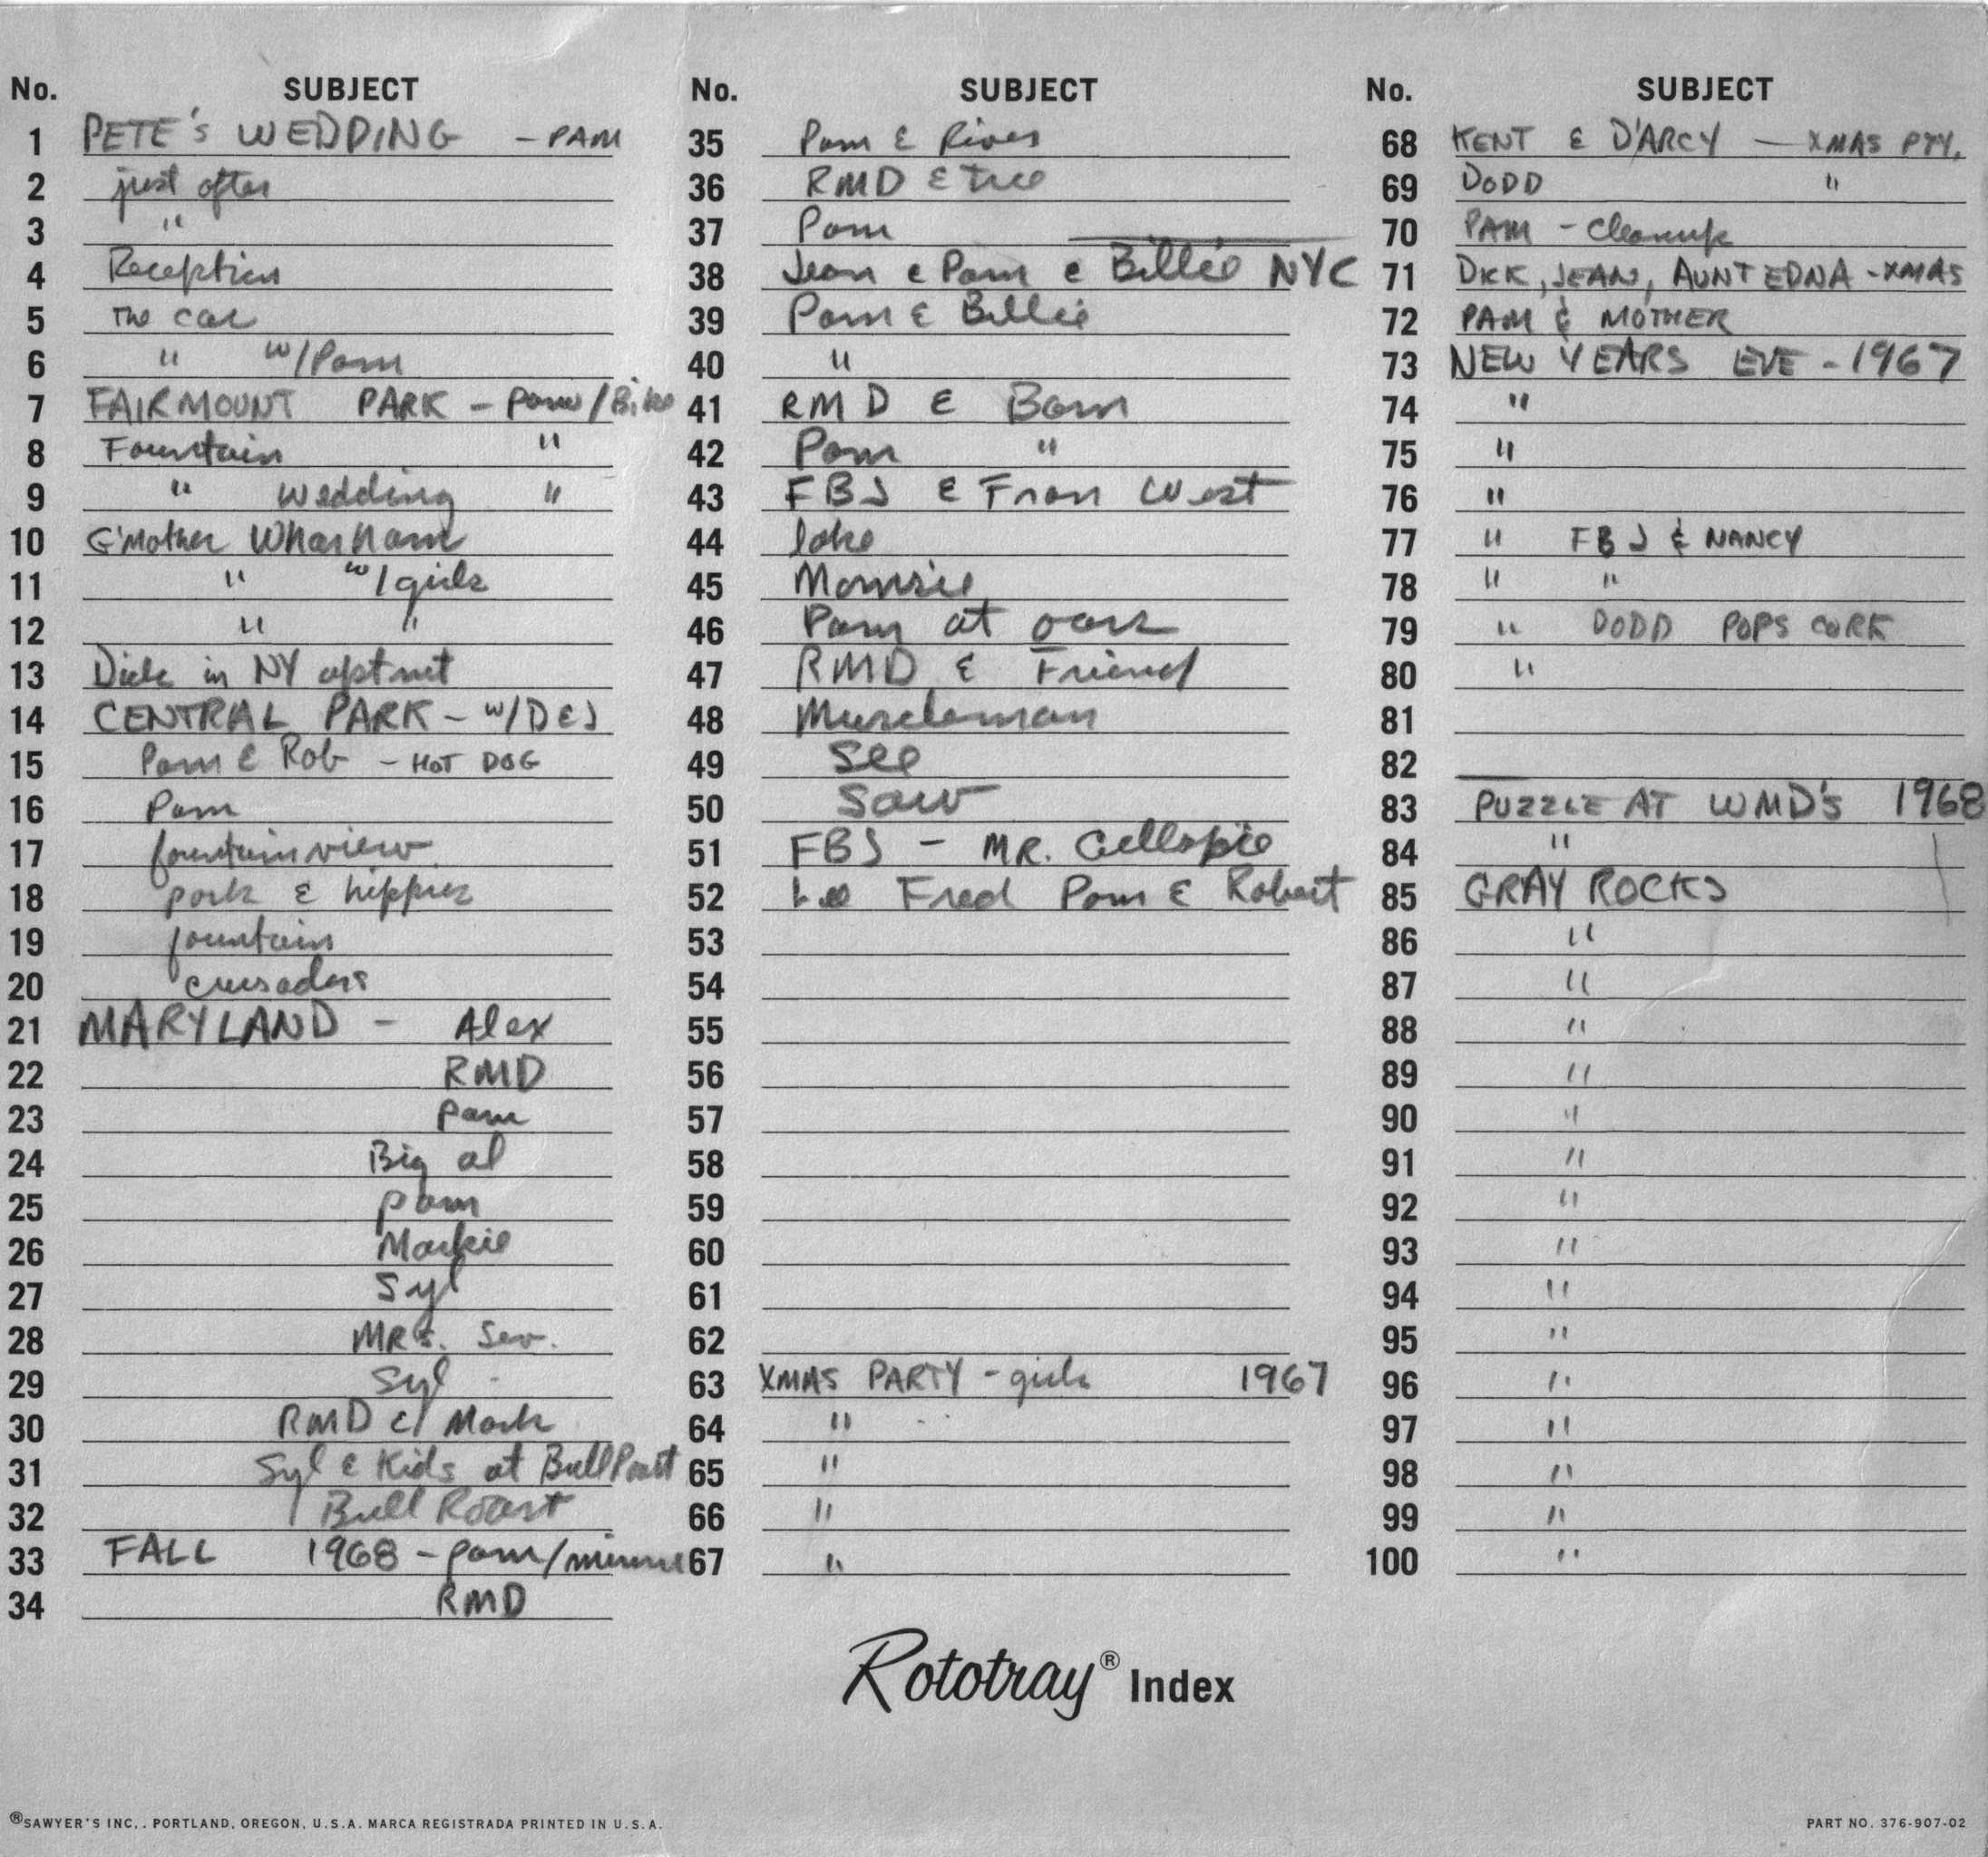 No. SUBJECT
1 PETE's WEDDING - PAM
2 just after
3 "
4 Reception
5 The car
6 " w/Pam
7 FAIRMOUNT PARK - Pam/Bike
8 Fountain "
9 " wedding "
10 G'Mother Wharham
11 " w/girls
12 " "
13 Dick in NY aptmt
14 CENTRAL PARK - w/D&J
15 Pam & Rob - HOT DOG
16 Pam
17 fountain view
18 park & hippies
19 fountain
20 crusaders
21 MARYLAND - Alex
22 RMD
23 Pam
24 Big al
25 pam
26 Markie
27 Syl
28 MRS. Sev.
29 Syl
30 RMD & Mark
31 Syl & Kids at Bull Roast
32 Bull Roast
33 FALL 1968 - pam/
34 RMD
No. SUBJECT
35 Pam & River
36 RMD & tree
37 Pam
38 Jean & Pam & Billie NYC
39 Pam & Billie
40 "
41 RMD & Barn
42 Pam "
43 FBJ & Fran West
44 lake
45 Momsie
46 Pam at oars
47 RMD & Friend
48 Muscleman
49 See
50 Saw
51 FBJ - MR. Gillespie
52 Fred Pam & Robert
53
54
55
56
57
58
59
60
61
62
63 XMAS PARTY - girls 1967
64 "
65 "
66 "
67 "
No. SUBJECT
68 KENT & D'ARCY - XMAS PTY.
69 DODD "
70 PAM - Cleanup
71 DKK, JEAN, AUNT EDNA - XMAS
72 PAM & MOTHER
73 NEW YEARS EVE - 1967
74 "
75 "
76 "
77 " FBJ & NANCY
78 " "
79 " DODD POPS CORK
80 "
81
82
83 PUZZLE AT WMD's 1968
84 "
85 GRAY ROCKS
86 "
87 "
88 "
89 "
90 "
91 "
92 "
93 "
94 "
95 "
96 "
97 "
98 "
99 "
100 "
Rototray® Index
®SAWYER'S INC., PORTLAND, OREGON, U.S.A. MARCA REGISTRADA PRINTED IN U.S.A.
PART NO. 376-907-02